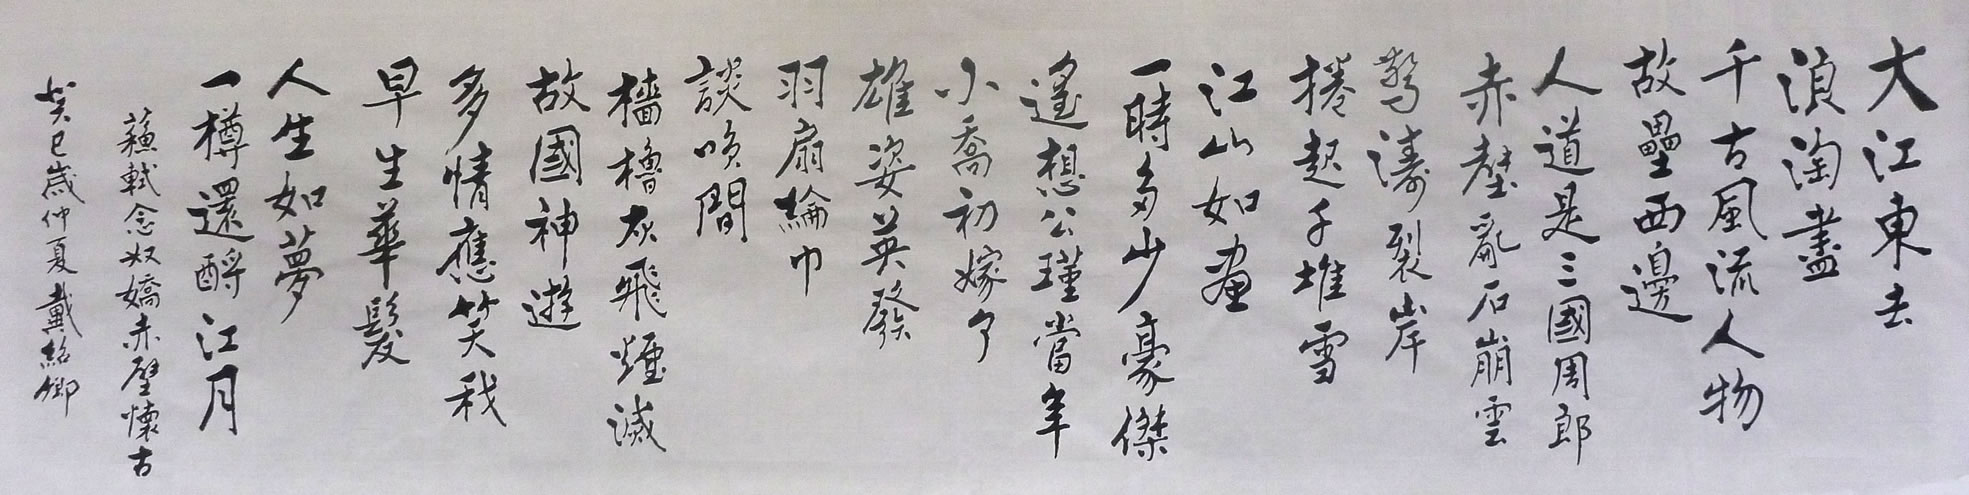 大江東去
浪淘盡
千古風流人物
故壘西邊
人道是三國周郎
赤壁亂石崩雲
驚濤裂岸
捲起千堆雪
江山如畫
一時多少豪傑
遙想公瑾當年
小喬初嫁了
雄姿英發
羽扇綸巾
談唢間
檣櫓灰飛煙滅
故國神遊
多情應笑我
早生華髮
人生如夢
一樽還酹江月
蘇軾念奴嬌赤壁懷古
癸巳歲仲夏戴紹卿